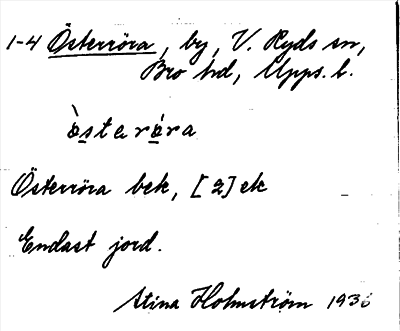 1-4 Österröra, by, V. Ryds sn,
Bro hd, Upps. l.
ò̤sterö̀ra
Österröra bek, [2] ek
Endast jord.
Stina Holmström 1936